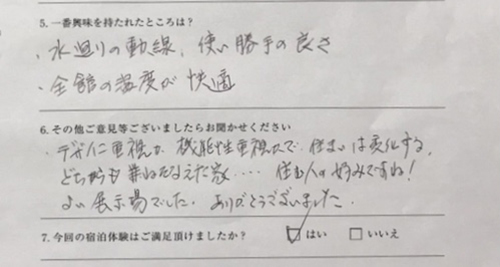 5. 一番興味を持たれたところは?
・水廻りの動線、使い勝手の良さ
・全館の温度が快適
6. その他ご意見等ございましたらお聞かせください
・デザインに重視か機能性重視かで住まいは変化する。
どちらも兼ねそなえた家‥‥住む人の好みですね!
よい展示場でした。ありがとうございました。
7. 今回の宿泊体験はご満足頂けましたか? ☑はい □いいえ